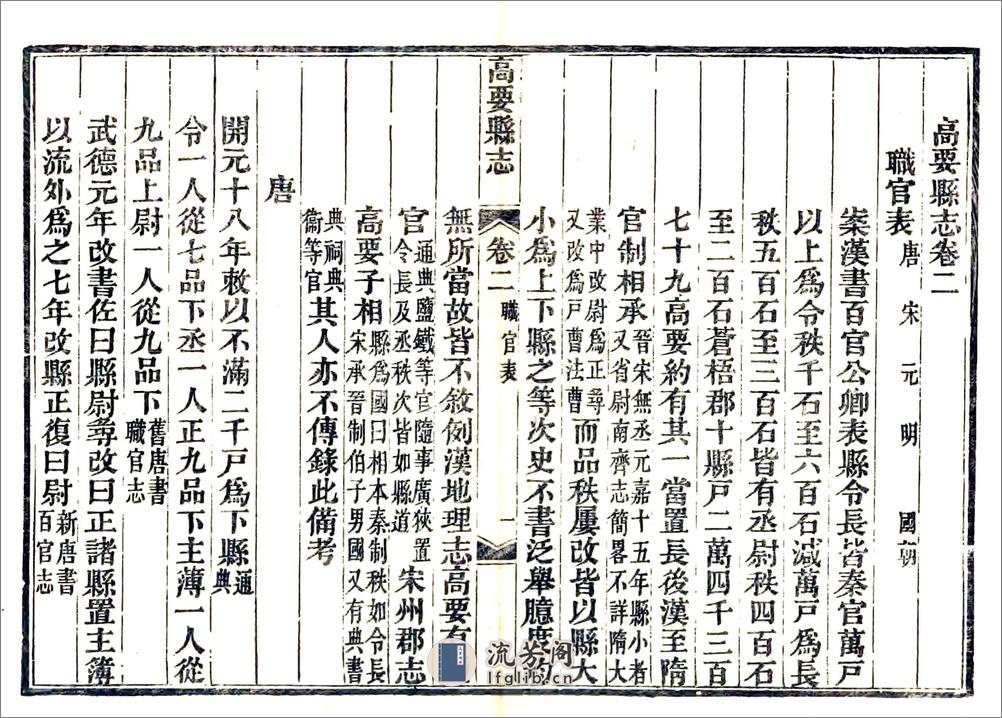 高要縣志卷二
職官表 唐 宋 元 明 國朝
案漢書百官公卿表縣令長皆秦官萬戶
以上爲令秩千石至六百石減萬戶爲長
秩五百石至三百石皆有丞尉秩四百石
至二百石蒼梧郡十縣戶二萬四千三百
七十九高要約有其一當置長後漢至隋
官制相承晉宋無丞元嘉十五年縣小者又省尉南齊志簡畧不詳隋大
業中改尉爲正尋又改爲戶曹法曹而品秩屢改皆以縣大
小爲上下縣之等次史不書泛舉臆度
高要縣志 卷二 職官表 一
無所當故皆不敘例漢地理志高要有
官通典鹽鐵等官隨事廣狹置令長及丞秩次皆如縣道宋州郡志
高要子相縣爲國曰相本秦制秩如令長宋承晉制伯子男國又有典書
典祠典衞等官其人亦不傳錄此備考
唐
開元十八年敕以不滿二千戶爲下縣通典
令一人從七品下丞一人正九品下主薄一人從
九品上尉一人從九品下舊唐書職官志
武德元年改書佐曰縣尉尋改曰正諸縣置主簿
以流外爲之七年改縣正復曰尉新唐書百官志
流芳阁
lfglib.cn